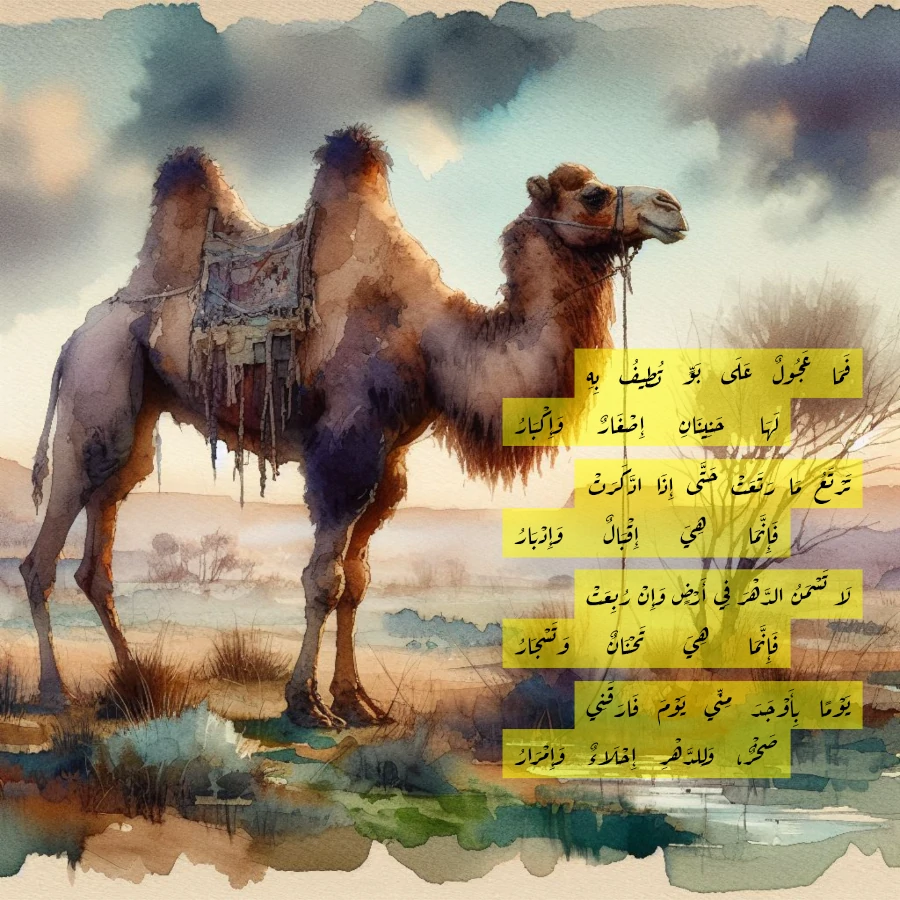 فَمَا عَجُولٌ عَلَى بَوٍّ تُطِيفُ بِهِ
لَهَا حَنِينَانِ إِصْغَارٌ وَإِكْبَارُ
تَرْتَعُ مَا رَتَعَتْ حَتَّى إِذَا ادَّكَرَتْ
فَإِنَّمَا هِيَ إِقْبَالٌ وَإِدْبَارُ
لَا تَسْمَنُ الدَّهْرَ فِي أَرْضٍ وَإِنْ رُبِعَتْ
فَإِنَّمَا هِيَ تَحْنَانٌ وَتَسْجَارُ
يَوْمًا بِأَوْجَدَ مِنِّي يَوْمَ فَارَقَنِي
صَخْرٌ، وَلِلدَّهْرِ إِحْلَاءٌ وَإِمْرَارُ